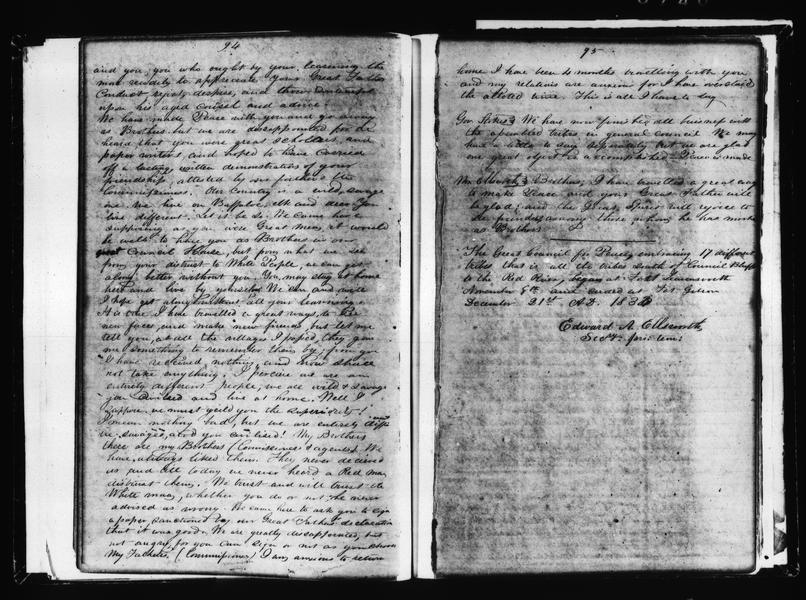 94
and you, you who ought by your learning the
more readily to appreciate your Great Father
Conduct reject, despise, and throw contempt
upon his aged council and advice.
We have made Peace with you and go away
as Brothers but we are disappointed for we
heard that you were great Schollars, and
paper writers and hoped to have carried
off a lasting, written demonstration of your
friendship, attested by our fathers the
Commissioners. Our Country is a wild, savage
one we live on Buffaloe, elk and deer You
live different. Let it be so. We came here
supposing as you were Great Men, it would
be well to have you as Brothers in our
Council House, but from what we see
from your distrust to White People, we can get
along better without you. You may stay at home
here and live by yourselves We can and will
I hope get along without all your learning.
It is true I have travelled a great ways, to see
new faces, and make new friends, but let me
tell you, at all the villages I passed, they gave
me something to remember them by; from you
I have received nothing, and now shall
not take anything. I perceive we are an
entirely different people, we are wild & savage
you civilised and live at home. Well I
suppose we must yield you the superiority!
I mean nothing bad, but we are entirely
we savages, and you civilised! My Brothers
these are my Brothers (Commissioners & agents). We
have always liked them. They never deceived
us and till today we never heard a Red man
distrust them. We trust and will trust the
White man, whether you do or not. He never
advised us wrong. We came here to ask you to sign
a paper, sanctioned by our Great Fathers declaration
that it was good. We are greatly disappointed, but
not angry, for you can sign or not as you choose
My Fathers, (Commissioners) I am anxious to return
95
home I have been 4 months travelling with you
and my relations are anxious for I have overstaid
the alloted time. This is all I have to say
Gov. Stokes We have now finished all business with
the assembled tribes in general Council We may
have a little to say separately but we are glad
one great object is accomplished. Peace is made
Mr. Ellsworth Brothers, I have travelled a great way
to make Peace and your Great Father will
be glad; and the Great Spirit will rejoice to
see friends among those whom he has made
as Brothers
The Great Council for Peace, embracing 17 different
tribes that is all the tribes South of Council Bluffs
to the Red River, began at Fort Leavenworth
November 6th and ended at Ft. Gibson
December 21st A.D. 183
Edward A. Ellsworth
Secty. pro: tem: